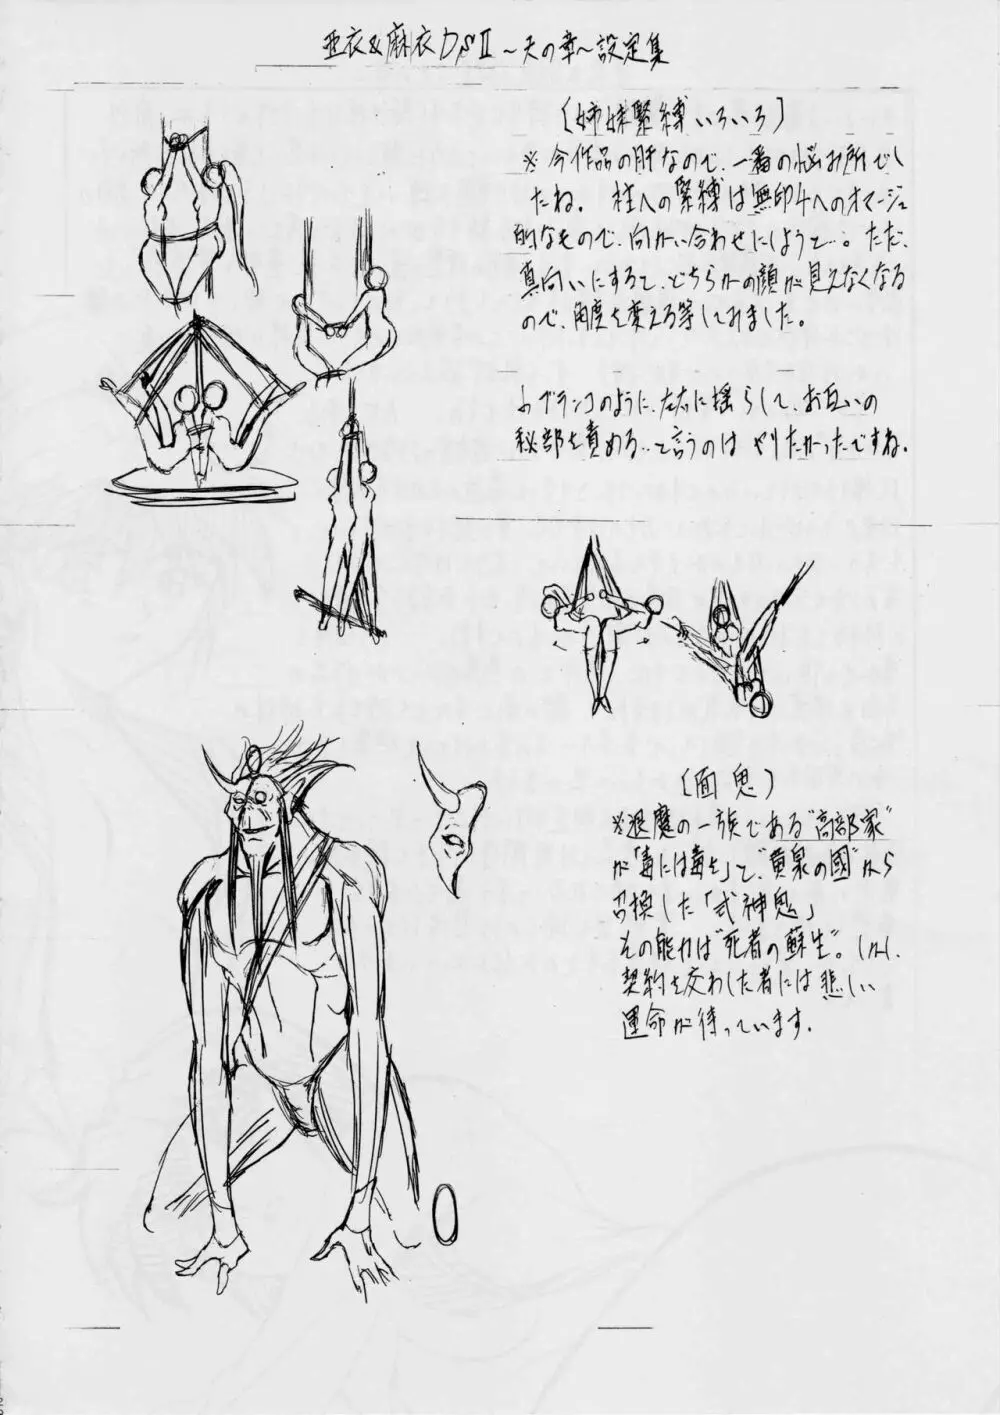 亜衣&麻衣DSⅡ～天の章～設定集
〔姉妹緊縛いろいろ〕
※今作品の肝なので、一番の悩み所でし
たね。 柱への緊縛は無印4へのオマージュ
的なもので、向かい合わせにしようと…。ただ、
真向いにすると、どちらかの顔が見えなくなる
ので、角度を変える等してみました。
ブランコのように、左右に揺らして、お互いの
秘部を責める…と言うのは やりたかったですね。
〔面鬼〕
※退魔の一族である“高部家”
が「毒には毒を」と、“黄泉の國”から
召換した「式神鬼」
その能力は“死者の蘇生”。しかし、
契約を交わした者には悲しい
運命が待っています.